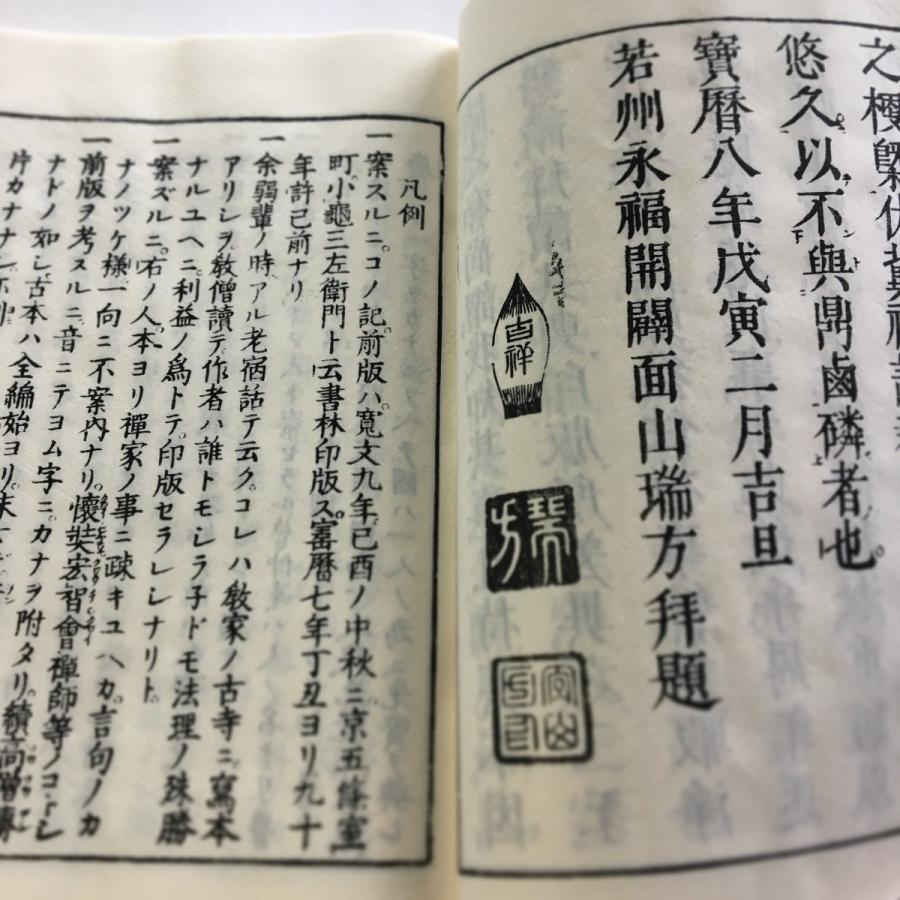 悠久。以不與鼎鹵磷者也。
寶曆八年戊寅二月吉旦
若州永福開闢面山瑞方拜題
吉祥
瑞方
凡例
一案スルニ。コノ記前版ハ。寬文九年己酉ノ中秋ニ。京五條室
町。小龜三左衛門ト云書林印版ス。寶曆七年丁丑ヨリ九十
年許已前ナリ
一余弱輩ノ時。アル老宿話テ云ク。コレハ教家ノ古寺ニ寫本
アリシヲ。教僧讀テ。作者ハ誰トモシラ子ドモ法理ノ殊勝
ナルユヘニ。利益ノ爲トテ。印版セラレシナリト。
一案ズルニ。右ノ人本ヨリ禪家ノ事ニ疎キユヘカ。言句ノカ
ナノツケ樣一向ニ不案內ナリ。懷奘宏智會禪師等ノコトシ
一前版ヲ考スルニ。音ニテヨム字ニ。カナヲ附タリ。續高僧傳
ナドノ如シ。古本ハ全編始ヨリ
片カナナ